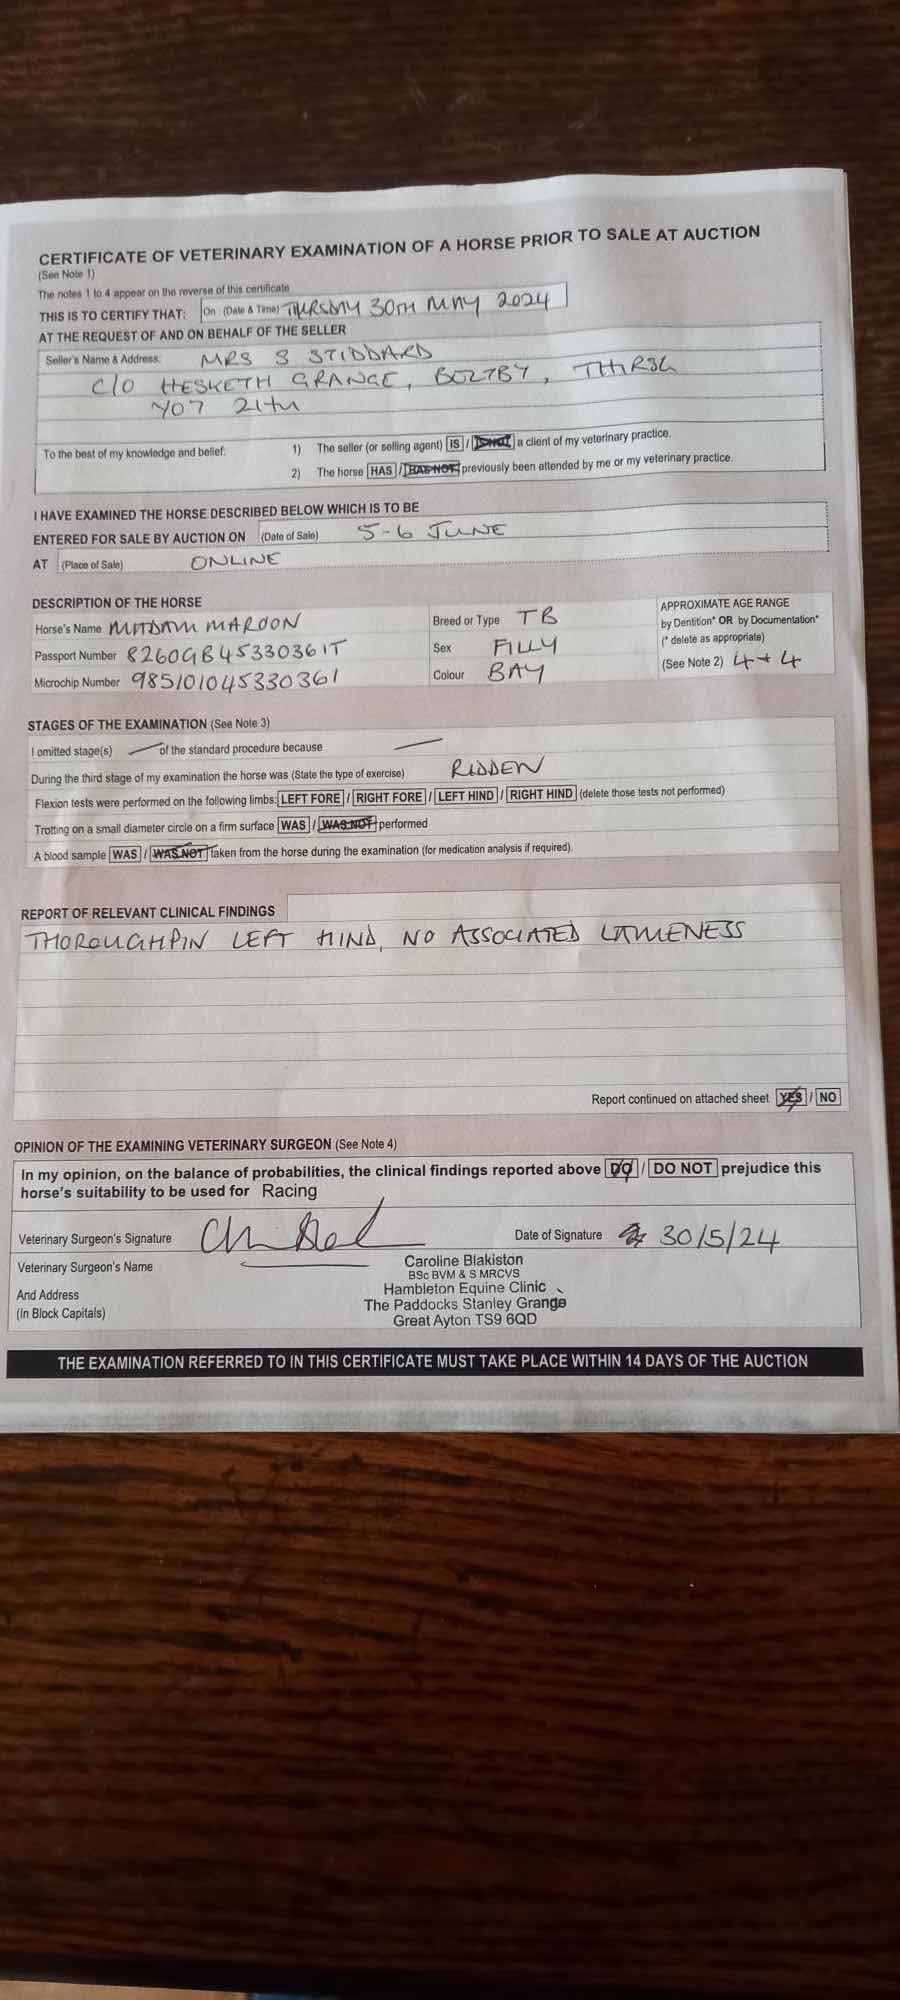 CERTIFICATE OF VETERINARY EXAMINATION OF A HORSE PRIOR TO SALE AT AUCTION
(See Note 1)
The notes 1 to 4 appear on the reverse of this certificate
THIS IS TO CERTIFY THAT: On (Date & Time) THURSDAY 30TH MAY 2024
AT THE REQUEST OF AND ON BEHALF OF THE SELLER
Seller's Name & Address: MRS S STIDDARD
C/O HESKETH GRANGE, BOLTBY, THIRSK
YO7 2HU
To the best of my knowledge and belief: 1) The seller (or selling agent) IS / IS NOT a client of my veterinary practice.
2) The horse HAS / HAS NOT previously been attended by me or my veterinary practice.
I HAVE EXAMINED THE HORSE DESCRIBED BELOW WHICH IS TO BE
ENTERED FOR SALE BY AUCTION ON (Date of Sale) 5-6 JUNE
AT (Place of Sale) ONLINE
DESCRIPTION OF THE HORSE
Horse's Name MADAM MAROON Breed or Type TB
Passport Number 8260GB45330361T Sex FILLY
Microchip Number 985101045330361 Colour BAY
APPROXIMATE AGE RANGE
by Dentition* OR by Documentation*
(* delete as appropriate)
(See Note 2) 4 → 4
STAGES OF THE EXAMINATION (See Note 3)
I omitted stage(s) — of the standard procedure because —
During the third stage of my examination the horse was (State the type of exercise) RIDDEN
Flexion tests were performed on the following limbs: LEFT FORE / RIGHT FORE / LEFT HIND / RIGHT HIND (delete those tests not performed)
Trotting on a small diameter circle on a firm surface WAS / WAS NOT performed
A blood sample WAS / WAS NOT taken from the horse during the examination (for medication analysis if required).
REPORT OF RELEVANT CLINICAL FINDINGS
THOROUGHPIN LEFT HIND, NO ASSOCIATED LAMENESS
Report continued on attached sheet YES / NO
OPINION OF THE EXAMINING VETERINARY SURGEON (See Note 4)
In my opinion, on the balance of probabilities, the clinical findings reported above DO / DO NOT prejudice this
horse's suitability to be used for Racing
Veterinary Surgeon's Signature Date of Signature 30/5/24
Veterinary Surgeon's Name
And Address
(In Block Capitals)
Caroline Blakiston
BSc BVM & S MRCVS
Hambleton Equine Clinic
The Paddocks Stanley Grange
Great Ayton TS9 6QD
THE EXAMINATION REFERRED TO IN THIS CERTIFICATE MUST TAKE PLACE WITHIN 14 DAYS OF THE AUCTION